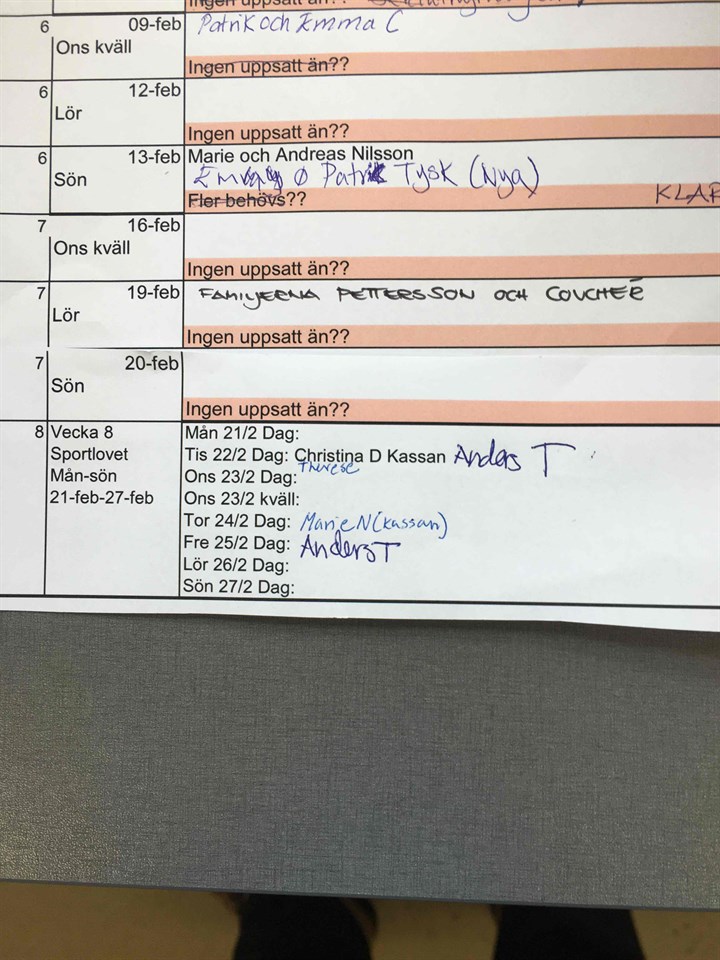 Ingen uppsatt än??
6 09-feb Patrik och Emma C
Ons kväll
Ingen uppsatt än??
6 12-feb
Lör
Ingen uppsatt än??
6 13-feb Marie och Andreas Nilsson
Sön Patrik Tysk (Nya)
Fler behövs??
7 16-feb
Ons kväll
Ingen uppsatt än??
7 19-feb FAMILJERNA PETTERSSON OCH COUCHÉR
Lör
Ingen uppsatt än??
7 20-feb
Sön
Ingen uppsatt än??
8 Vecka 8 Mån 21/2 Dag:
Sportlovet Tis 22/2 Dag: Christina D Kassan Anders T
Mån-sön Ons 23/2 Dag: Therese
21-feb-27-feb Ons 23/2 kväll:
Tor 24/2 Dag: Marie N (kassan)
Fre 25/2 Dag: Anders T
Lör 26/2 Dag:
Sön 27/2 Dag: